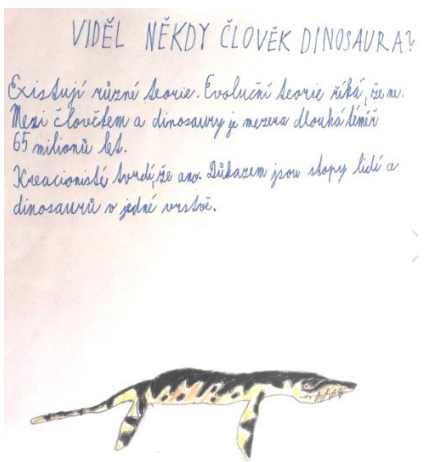 VIDĚL NĚKDY ČLOVĚK DINOSAURA?
Existují různé teorie. Evoluční teorie říká, že ne.
Mezi člověkem a dinosaury je mezera dlouhá téměř
65 milionů let.
Kreacionisté tvrdí, že ano. Důkazem jsou stopy lidí a
dinosaurů v jedné vrstvě.